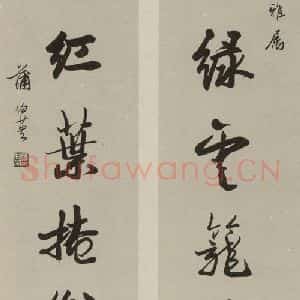 雅属
绿雲籠
红葉捲
蒲伯英
Shufawang.CN